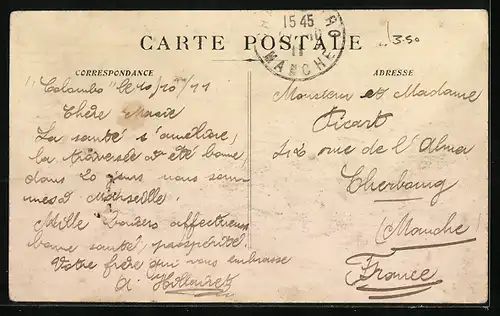 15 45
11
MANCHE
3.50
CARTE POSTALE
CORRESPONDANCE
"Colombo" le 10/10/11
Chère Marie
La santé s'améliore,
la traversée a été bonne,
dans 20 jours nous som
mes à Marseille.
Mille baisers affectueux
bonne santé, prospérité
Votre frère qui vous embrasse
A.
ADRESSE
Monsieur et Madame
Picart
rue de l'Alma
Cherbourg
(Manche)
France